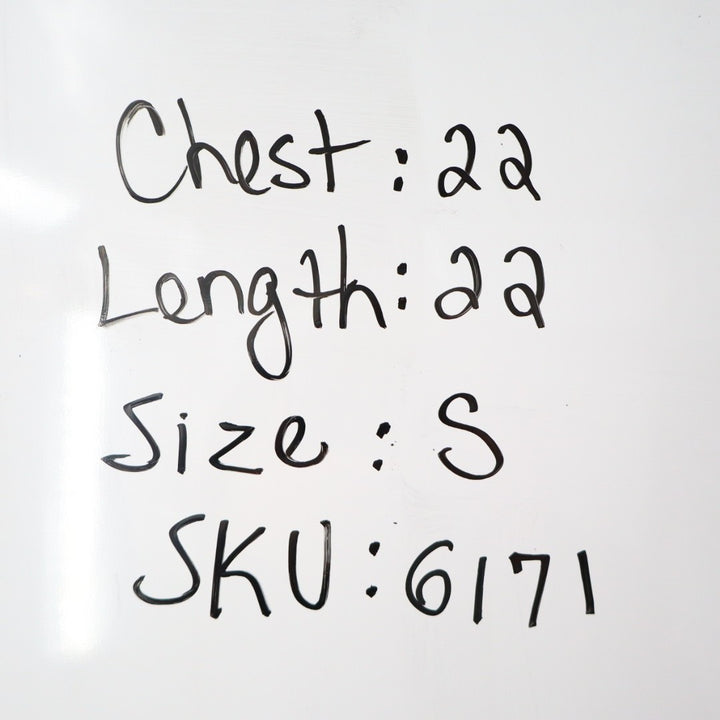 Chest: 22
Length: 22
Size: S
SKU: 6171